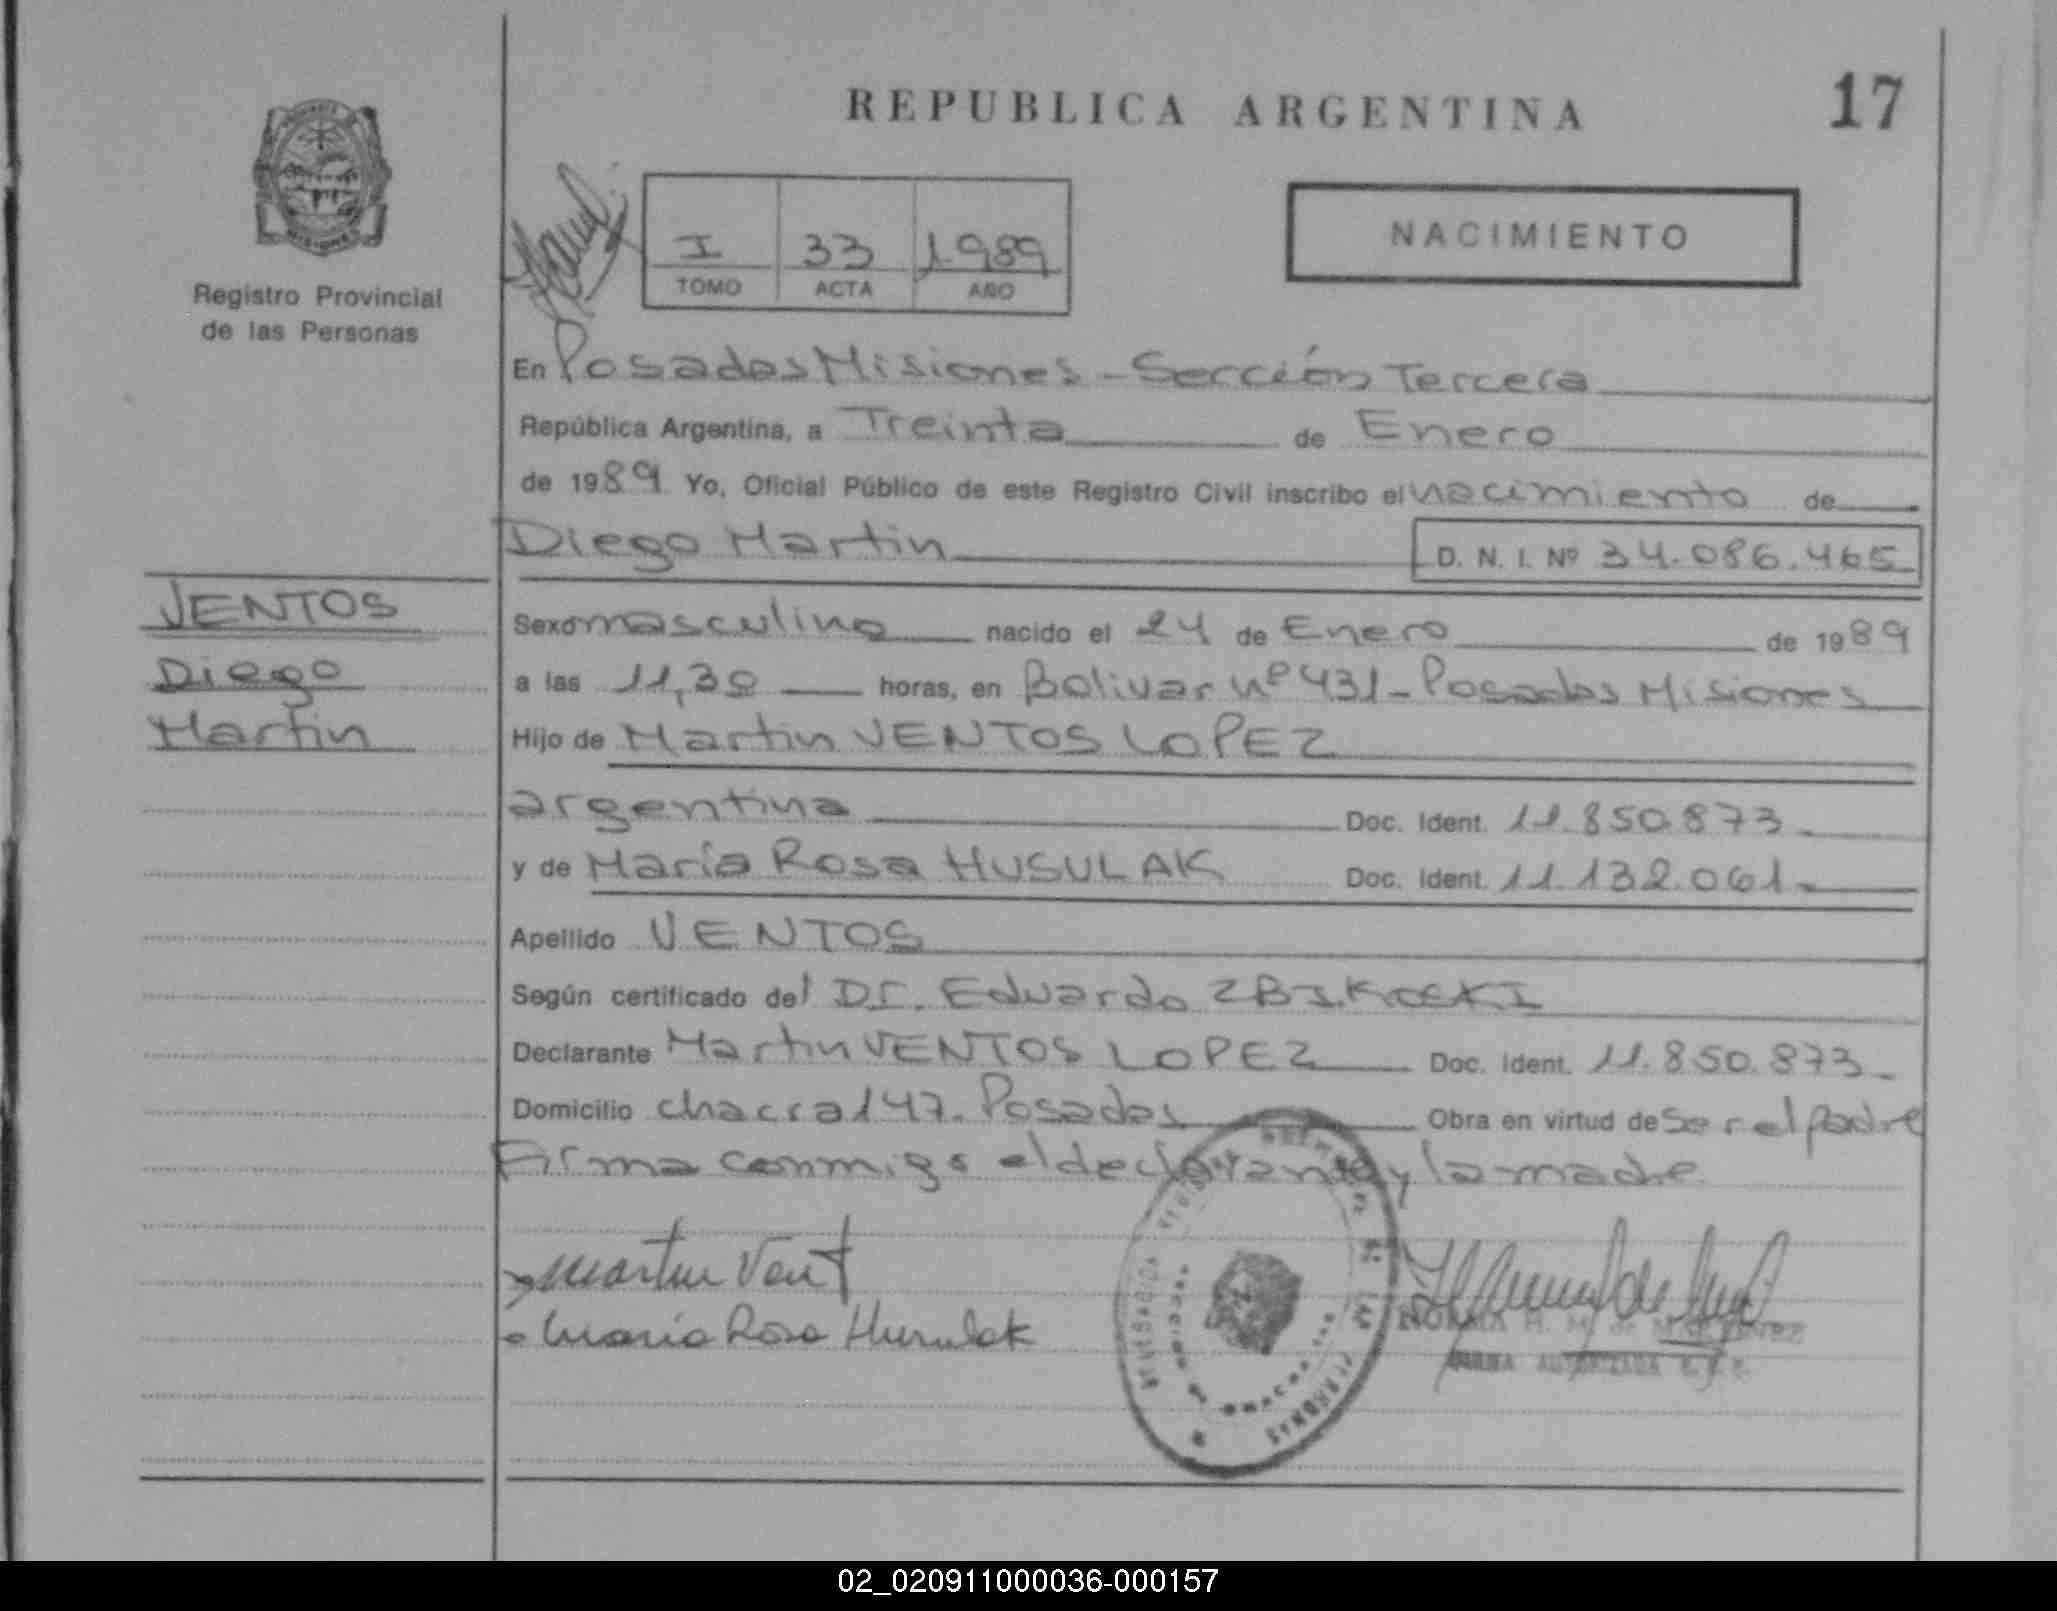 REPUBLICA ARGENTINA
17
Registro Provincial
de las Personas
I 33 1989
TOMO ACTA AÑO
NACIMIENTO
En Posadas Misiones - Sección Tercera
República Argentina, a Treinta de Enero
de 1989 Yo, Oficial Público de este Registro Civil inscribo el nacimiento de
Diego Martin
D. N. I. Nº 34.086.465
VENTOS
Diego
Martin
Sexo masculino nacido el 24 de Enero de 1989
a las 11,30 horas, en Bolivar nº 431 - Posadas Misiones
Hijo de Martin VENTOS LOPEZ
argentina Doc. Ident. 11.850.873
y de María Rosa HUSULAK Doc. Ident. 11.132.061
Apellido VENTOS
Según certificado del Dr. Eduardo
Declarante Martin VENTOS LOPEZ Doc. Ident. 11.850.873
Domicilio chacra 147. Posadas Obra en virtud de ser el padre
Firma conmigo el declarante y la madre
Martin Vent
Maria Rosa Husulak
NORMA H. M. de
FIRMA AUTORIZADA
PERSONAS
02_020911000036-000157